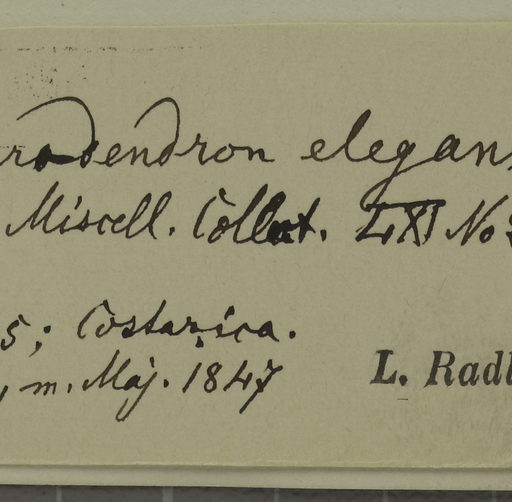 rodendron elegans
Miscell. Collect. LXI No
5; Costarica.
, m. Maj. 1847
L. Radl